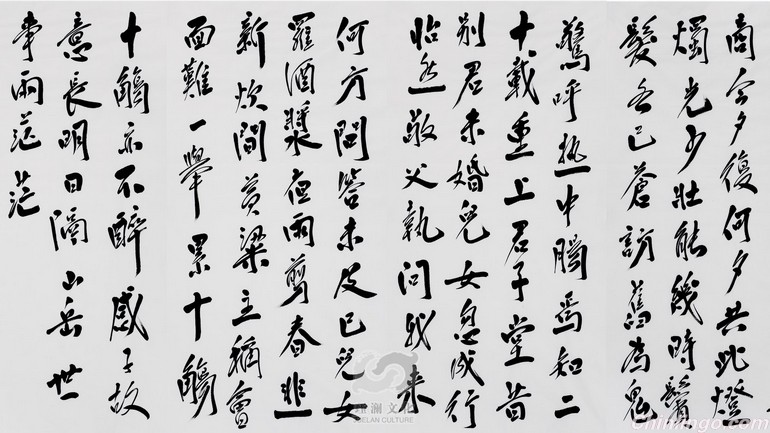 商今夕復何夕共此燈
燭光少壯能幾時鬢
髮各已蒼訪舊為鬼
驚呼热中腸焉知二
十載重上君子堂昔
別君未婚兒女忽成行
怡然敬父執问我来
何方問答未及已兒女
羅酒漿夜雨剪春韭
新炊間黃粱主稱會
面難一舉累十觴
十觴亦不醉感子故
意長明日隔山岳世
事兩茫茫
瀾文化
CULTURE